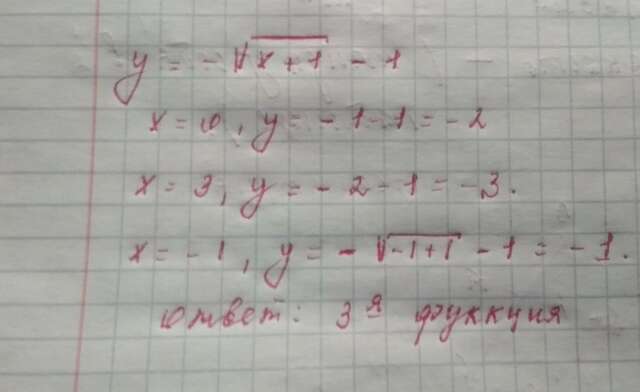 y = -√(x+1) - 1
x = 0, y = -1-1 = -2
x = 3, y = -2-1 = -3.
x = -1, y = -√(-1+1) - 1 = -1.
ответ: 3я функция